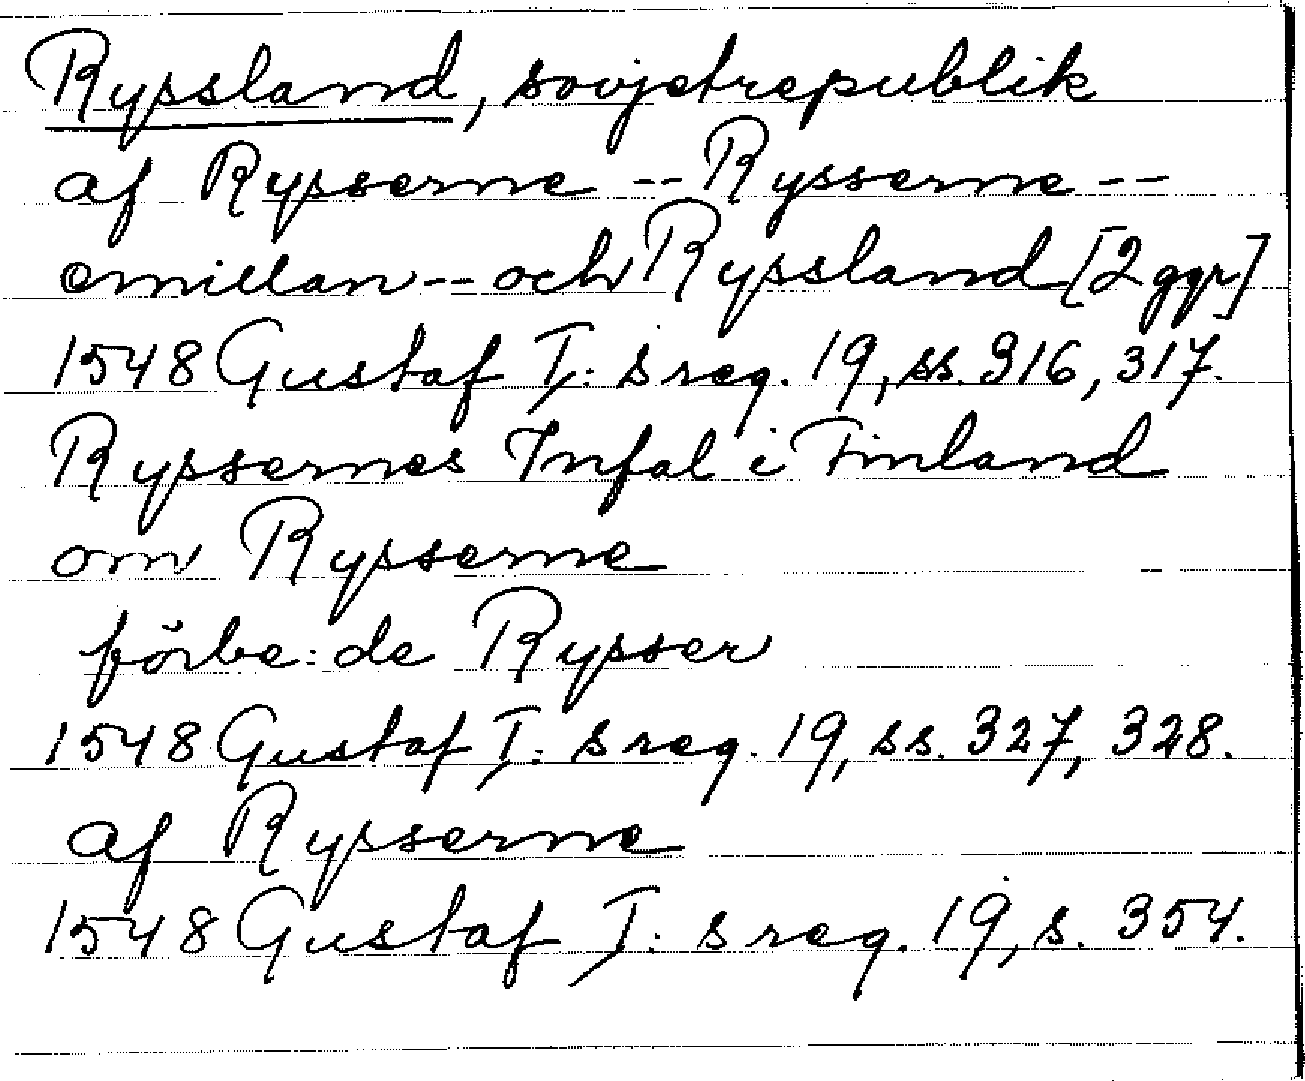 Ryssland, sovjetrepublik
af Rysserne -- Rysserne --
emillan -- och Ryssland [2 ggr]
1548 Gustaf I: s reg. 19, ss. 316, 317.
Ryssernes Infal i Finland
om Rysserne
förbe:de Rysser
1548 Gustaf I: s reg. 19, ss. 327, 328.
af Rysserne
1548 Gustaf I: s reg. 19, s. 354.